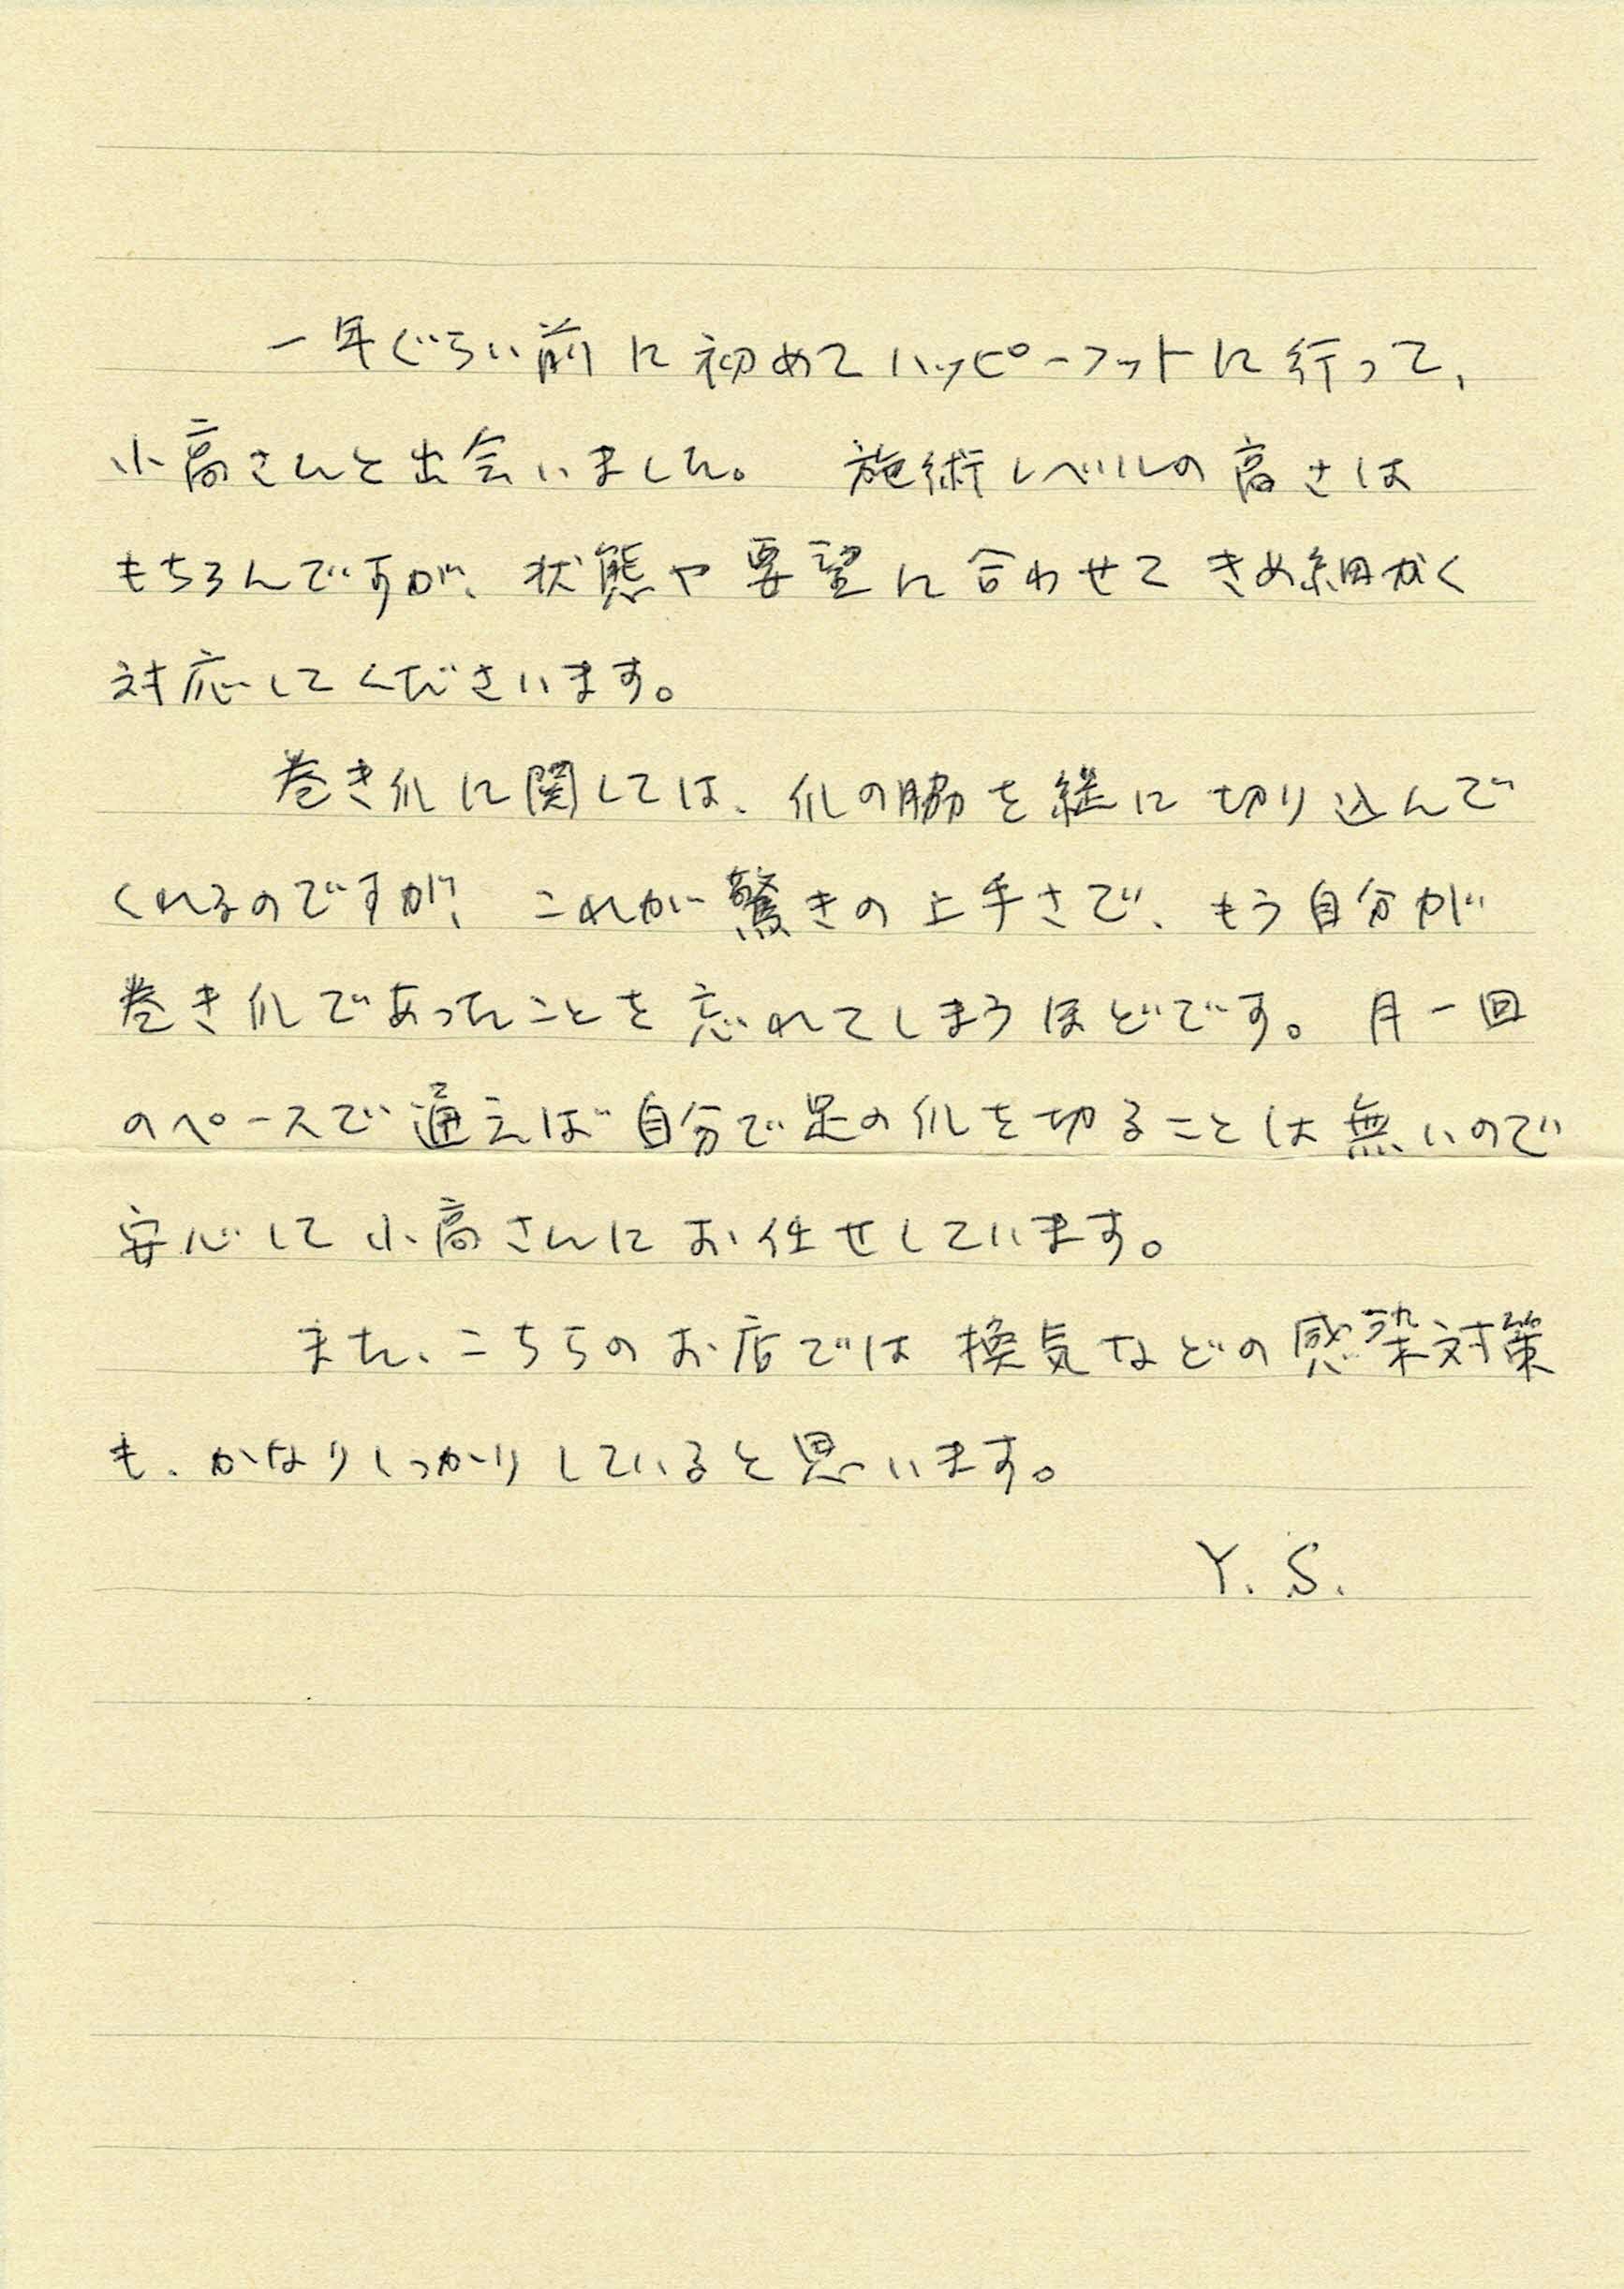 一年ぐらい前に初めてハッピーフットに行って、
小高さんと出会いました。 施術レベルの高さは
もちろんですが、状態や要望に合わせて きめ細かく
対応してくださいます。
巻き爪に関しては、爪の脇を縦に切り込んで
くれるのですが、これが驚きの上手さで、もう自分が
巻き爪であったことを忘れてしまうほどです。月一回
のペースで通えば自分で足の爪を切ることは無いので
安心して小高さんにお任せしています。
また、こちらのお店では換気などの感染対策
も、かなりしっかりしていると思います。
Y. S.